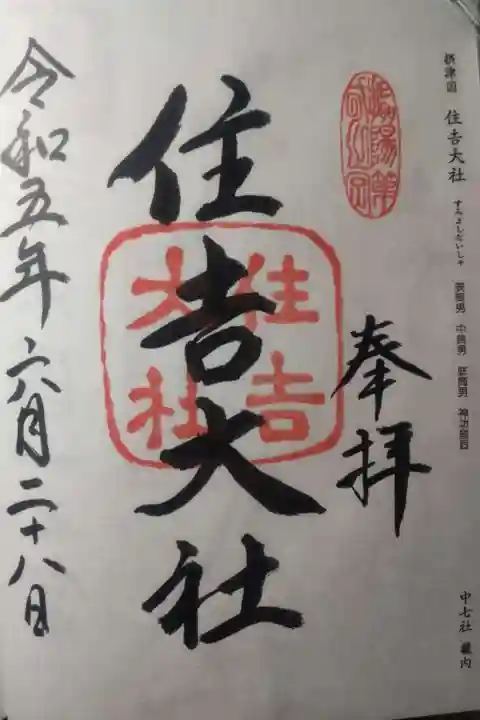 摂津国 住吉大社 すみよしだいしゃ 表筒男 中筒男 底筒男 神功皇后
中七社 畿内
奉拝
住吉大社
住吉
大社
令和五年六月二十八日